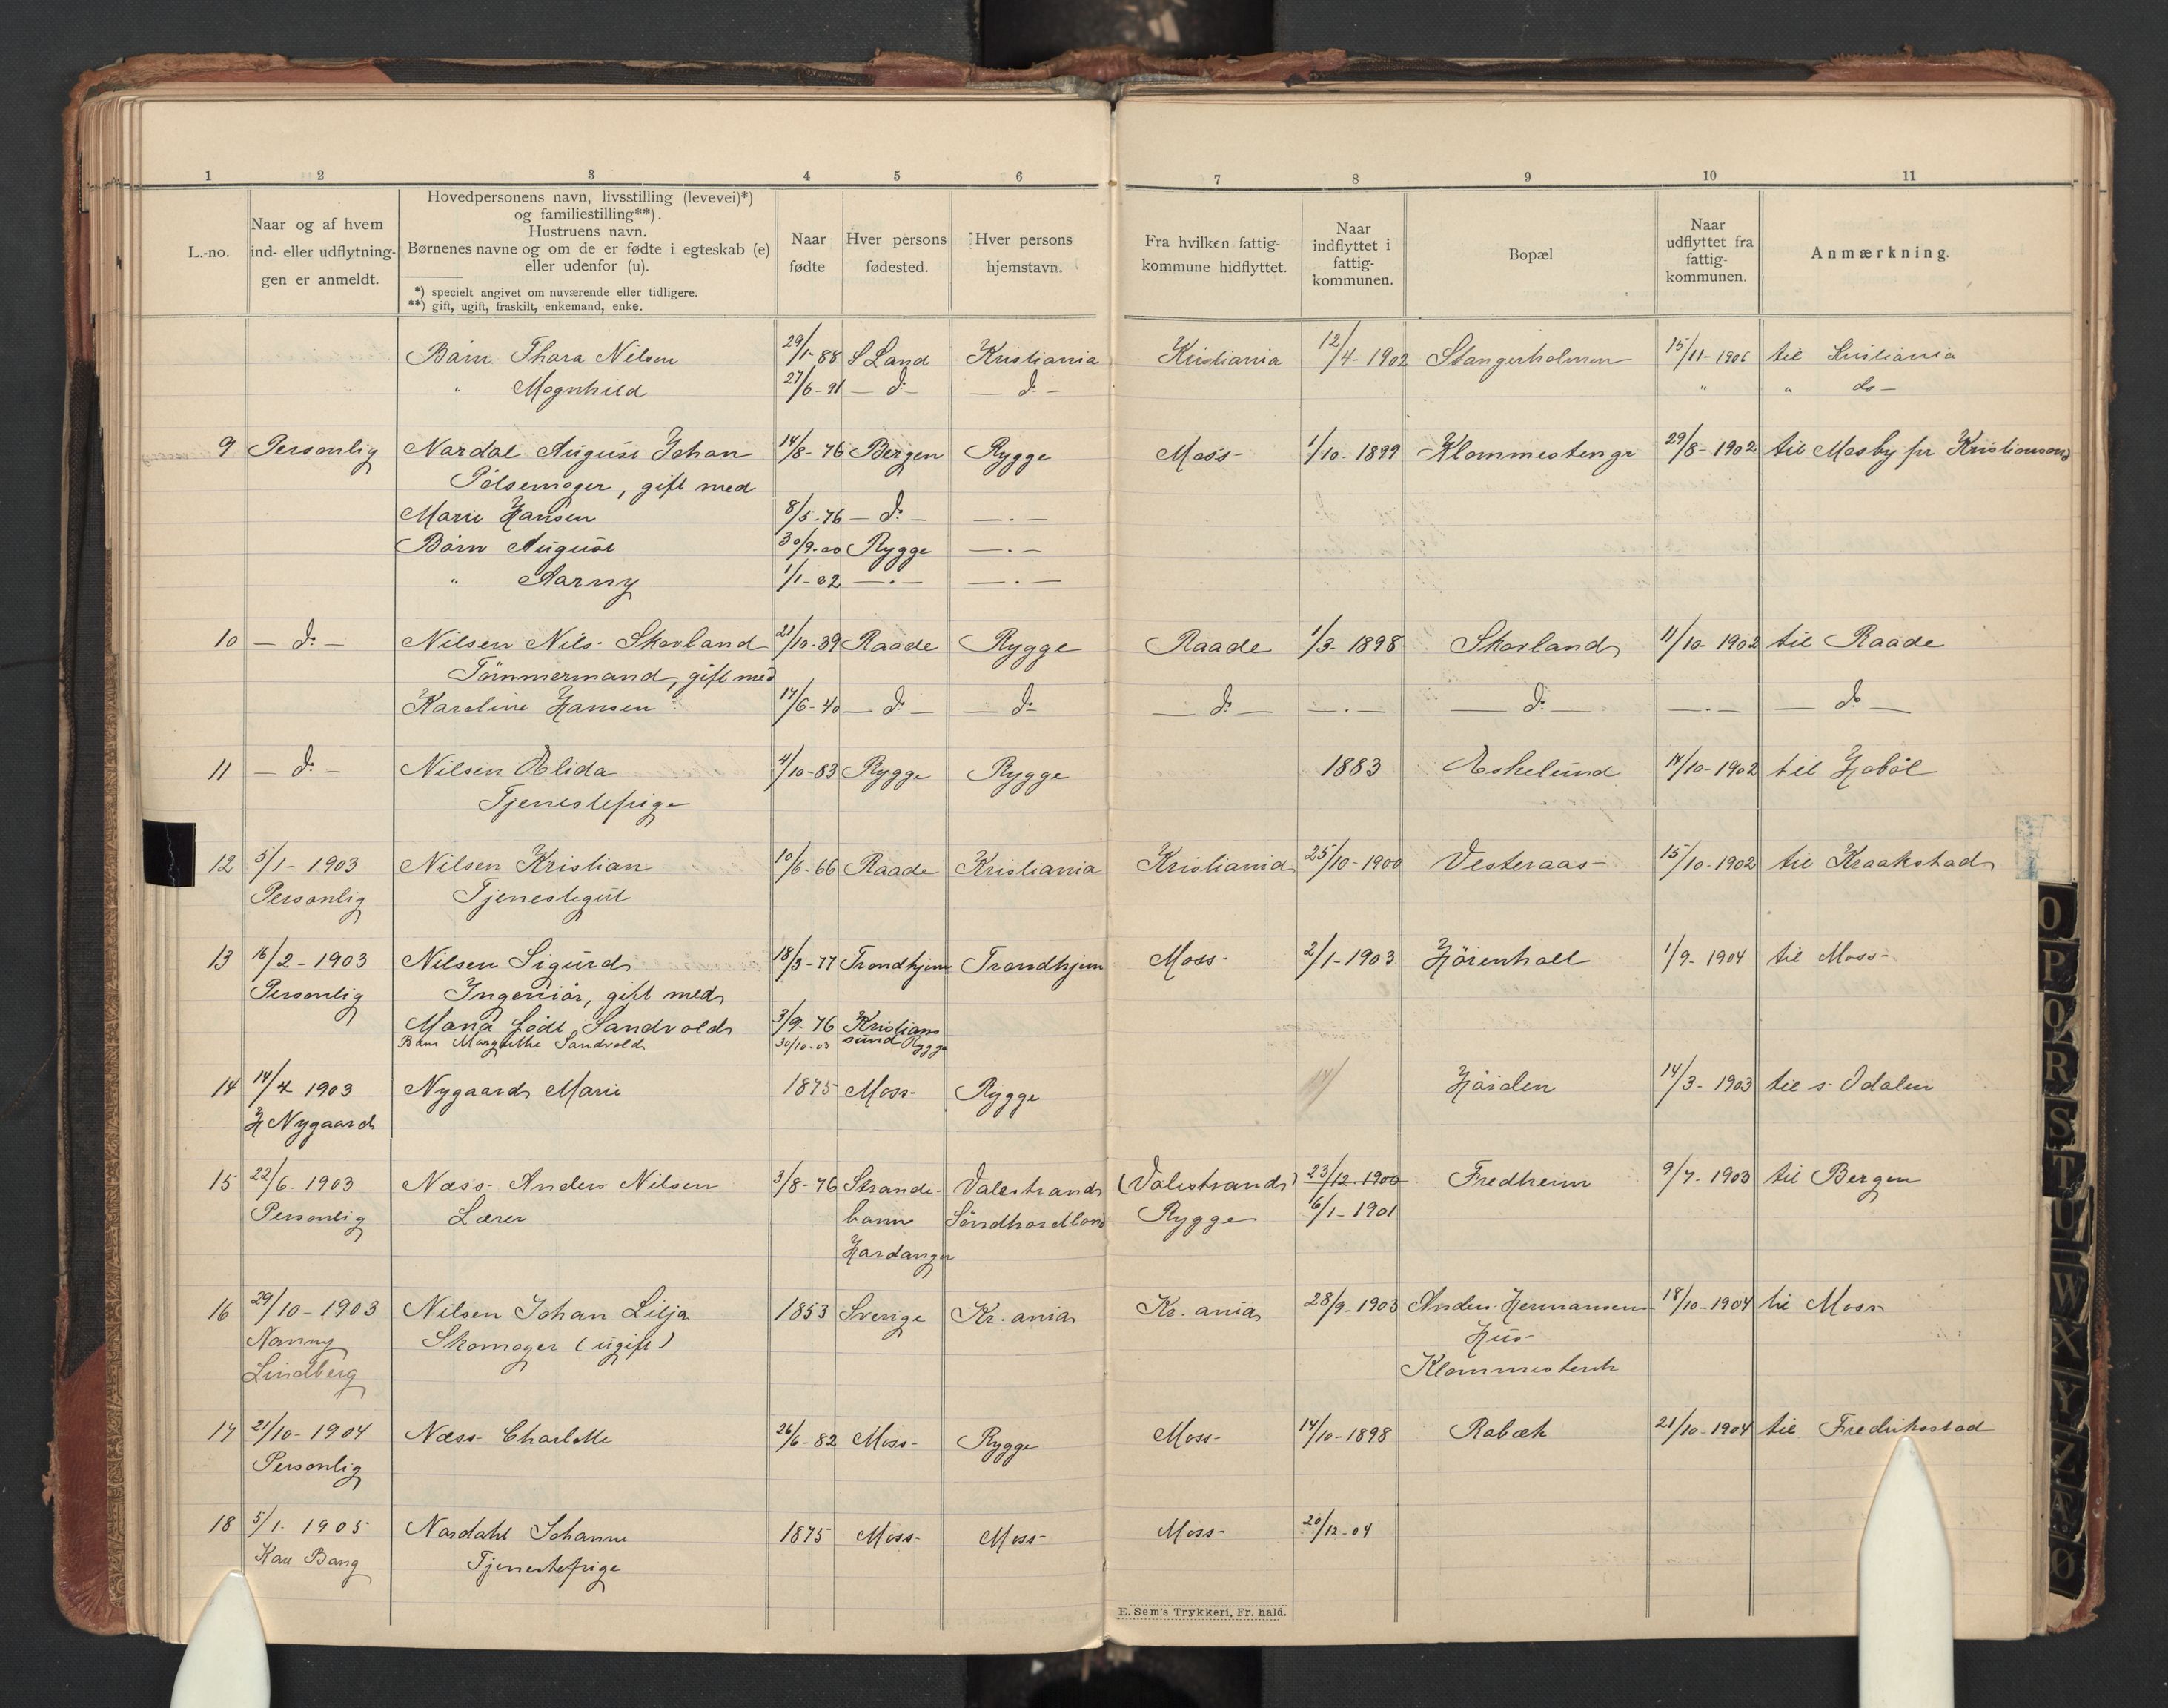 1 2 3 4 5 6 7 8 9 10 11
L.-no.
Naar og af hvem
ind- eller udflytnin-
gen er anmeldt.
Hovedpersonens navn, livsstilling (levevei)*)
og familiestilling**).
Hustruens navn.
Børnenes navne og om de er fødte i egteskab (e)
eller udenfor (u).
*) specielt angivet om nuværende eller tidligere.
**) gift, ugift, fraskilt, enkemand, enke.
Naar
fødte
Hver persons
fødested.
Hver persons
hjemstavn.
Fra hvilken fattig-
kommune hidflyttet.
Naar
indflyttet i
fattig-
kommunen.
Bopæl
Naar
udflyttet fra
fattig-
kommunen.
Anmærkning.
Barn Thora Nilsen 29/1-88 S Land Kristiania Kristiania 12/4-1902 Stangerholmen 15/11-1906 til Kristiania
" Magnhild 27/6-91 — do — — do — " " do —
9 Personlig Nordal August Johan 14/8-76 Bergen Rygge Moss- 1/10-1899 Klommestengr 29/8-1902 til Mosby pr Kristiansand
Pølsemager, gift med
Marie Hansen 8/5-76 — do — — . —
Barn August 30/9-00 Rygge — . —
" Aarny 1/1-02 — . — — . —
10 — do — Nilsen Nils Skovland 21/10-39 Raade Rygge Raade 1/3-1898 Skovland 11/10-1902 til Raade
Tømmermand, gift med
Karoline Hansen 17/6-40 — do — — do — do — — . — — do — — . — — do —
11 — do — Nilsen Alida 4/10-83 Rygge Rygge 1883 Askelund 14/10-1902 til Hobøl
Tjenestepige
12 5/1-1903 Nilsen Kristian 10/6-66 Raade Kristiania Kristiania 25/10-1900 Vesteraas- 15/10-1902 til Kraakstad
Personlig Tjenestegut
13 16/2-1903 Nilsen Sigurd 18/3-77 Trondhjem Trondhjem Moss- 2/1-1903 Hørenhall 1/9-1904 til Moss-
Personlig Ingeniør, gift med
Mana født Sandvold 3/9-76 Kristians
Barn Margrethe Sandvold 30/10-03 sund Rygge
14 14/4 1903 Nygaard Marie 1875 Moss- Rygge 14/ Høiden 14/3-1903 til s. Odalen
H Nygaard
15 22/6-1903 Næss- Anders Nilsen 3/8-76 Strande- Valestrand (Valestrand) 23/12-1900 Fredheim 9/7-1903 til Bergen
Personlig Lærer barm Søndhordland Rygge 6/1-1901
Hardanger
16 29/10-1903 Nilsen Johan Lilja 1853 Sverige Kr.ania Kr.ania 28/9-1903 Anders Hermansens 18/10-1904 til Moss
Nanny Skomager (ugift) Hus-
Lindberg Klommestenk
17 21/10-1904 Næss- Charlotte 26/6-82 Moss- Rygge Moss- 14/10-1898 Rabæk 21/10-1904 til Fredrikstad
Personlig
18 5/1-1905 Nordahl Johanne 1875 Moss- Moss- Moss- 20/12-04
Kari Bang Tjenestepige
E. Sem's Trykkeri, Fr. hald.
O
P
Q
R
S
T
U
W
X
Y
Z
Æ
Ø